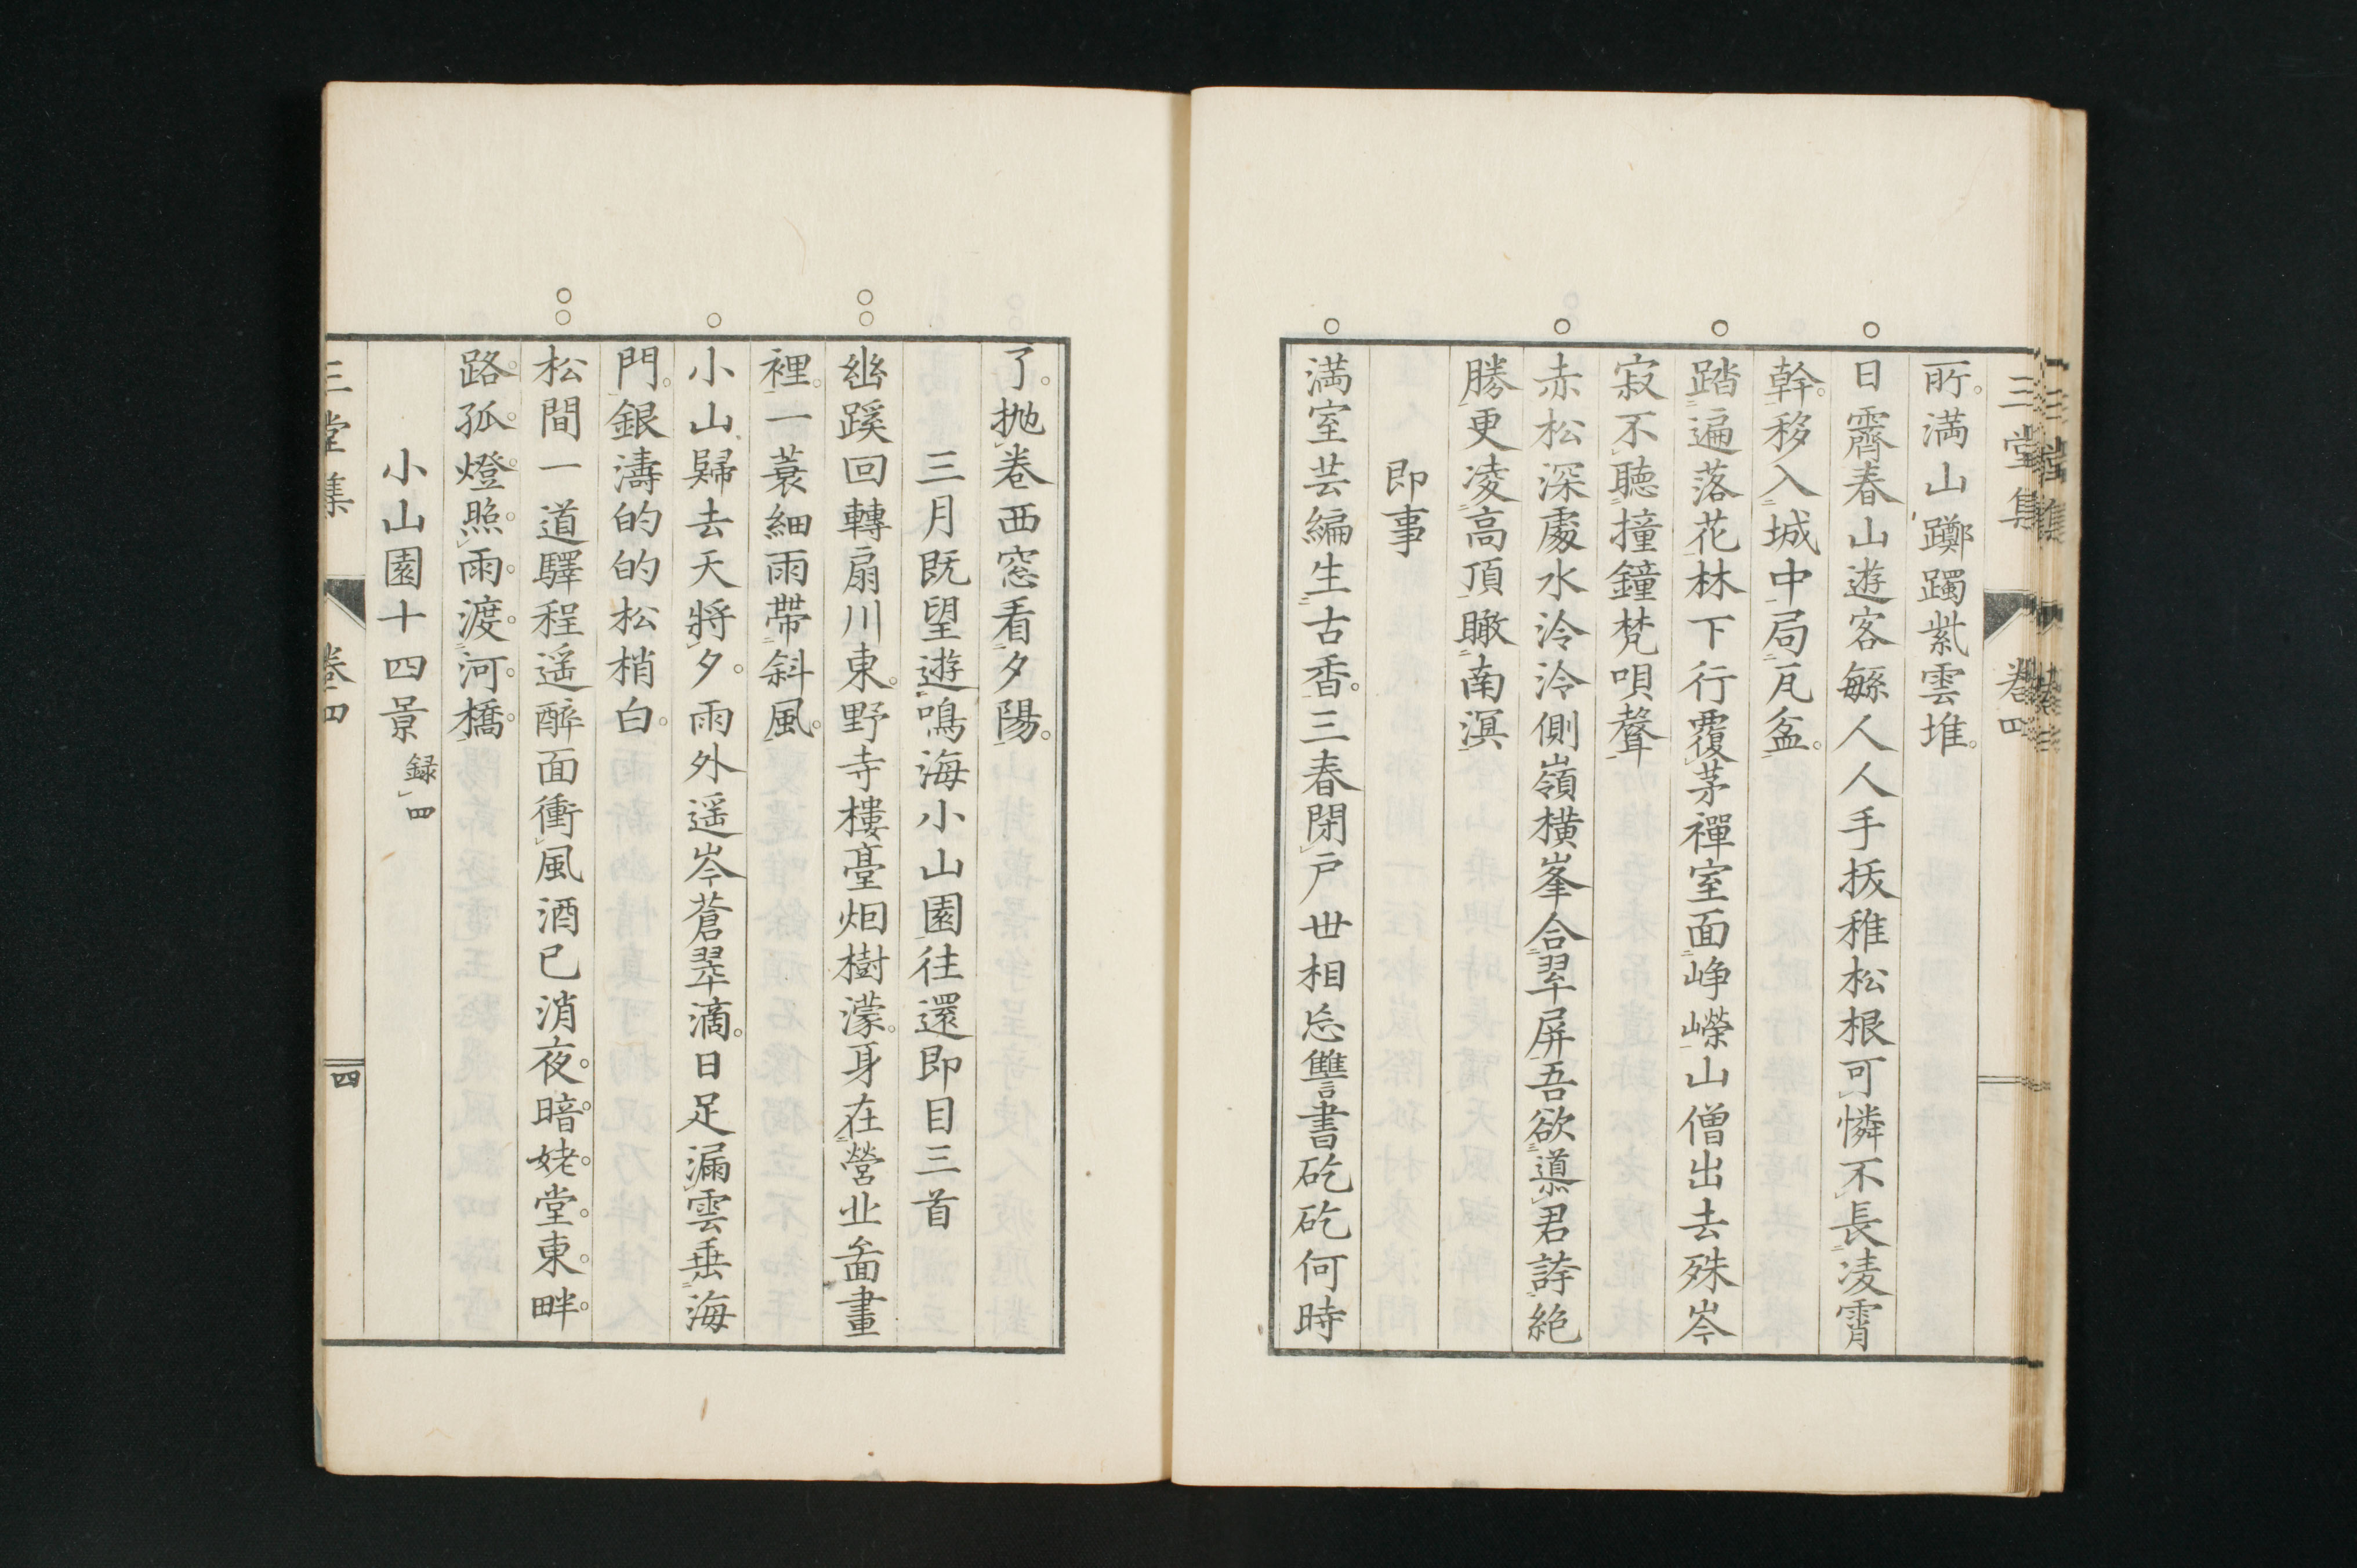 三堂集 卷四
所満山躑躅紫雲堆
日霽春山遊客緐人人手拔稚松根可憐不長凌霄
幹移入城中局瓦盆
踏遍落花林下行覆茅禪室面崢嶸山僧出去殊岑
寂不聽撞鐘梵唄聲
赤松深處水泠泠側嶺横峯合翠屏吾欲導君誇絶
勝更凌高頂瞰南溟
即事
満室芸編生古香三春閉戸世相忘讐書矻矻何時
了抛卷西窓看夕陽
三月既望遊鳴海小山園往還即目三首
幽蹊回轉扇川東野寺樓臺烟樹濛身在營丘畵畫
裡一蓑細雨帶斜風
小山歸去天將夕雨外遥岑蒼翠滴日足漏雲垂海
門銀濤的的松梢白
松間一道驛程遥醉面衝風酒已消夜暗姥堂東畔
路孤燈照雨渡河橋
小山園十四景 録四
三堂集 卷四 四